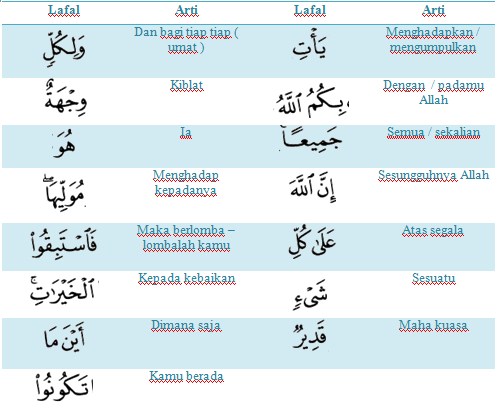 Lafal Arti Lafal Arti
وَلِكُلٍّ Dan bagi tiap tiap ( يَأْتِ Menghadapkan /
umat ) mengumpulkan
وِجْهَةٌ Kiblat بِكُمُ ٱللَّهُ Dengan / padamu
Allah
هُوَ Ia جَمِيعًا Semua / sekalian
مُوَلِّيهَا ۖ Menghadap إِنَّ ٱللَّهَ Sesungguhnya Allah
kepadanya
فَٱسْتَبِقُوا۟ Maka berlomba – عَلَىٰ كُلِّ Atas segala
lombalah kamu
ٱلْخَيْرَٰتِ ۚ Kepada kebaikan شَىْءٍ Sesuatu
أَيْنَ مَا Dimana saja قَدِيرٌ Maha kuasa
تَكُونُوا۟ Kamu berada